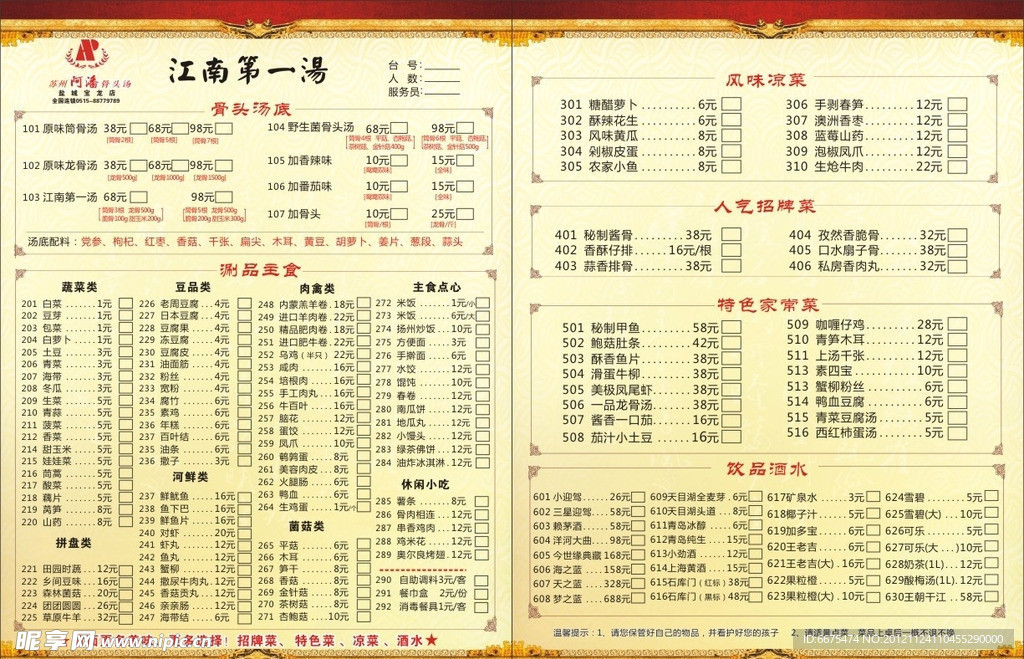 苏州 阿潘 骨头汤
盐城宝龙店
全国连锁0515-88779789
江南第一湯
台 号:
人 数:
服务员:
骨头汤底
101 原味筒骨汤 38元 68元 98元
[筒骨2根] [筒骨5根] [筒骨7根]
102 原味龙骨汤 38元 68元 98元
[龙骨500g] [龙骨1000g] [龙骨1500g]
103 江南第一汤 68元 98元
104 野生菌骨头汤 68元 98元
105 加香辣味 10元 15元
[鸳鸯双味] [全味]
106 加番茄味 10元 15元
[鸳鸯双味] [全味]
107 加骨头 10元 25元
[筒骨/根] [龙骨/斤]
汤底配料: 党参、枸杞、红枣、香菇、干张、扁尖、木耳、黄豆、胡萝卜、姜片、葱段、蒜头
涮品主食
蔬菜类
201 白菜 1元
202 豆芽 1元
203 包菜 1元
204 白萝卜 1元
205 土豆 3元
206 青菜 3元
207 海带 3元
208 冬瓜 3元
209 生菜 5元
210 青蒜 5元
211 菠菜 5元
212 香菜 5元
214 甜玉米 5元
215 娃娃菜 5元
216 茼蒿 5元
217 酸菜 5元
218 藕片 5元
219 莴笋 8元
220 山药 8元
拼盘类
221 田园时蔬 12元
222 乡间豆味 16元
223 森林菌菇 20元
224 团团圆圆 26元
225 草原牛羊 32元
豆品类
226 老周豆腐 4元
227 日本豆腐 4元
228 豆腐果 4元
229 冻豆腐 4元
230 豆腐皮 4元
231 油面筋 4元
232 粉丝 4元
233 宽粉 4元
234 腐竹 6元
235 素鸡 6元
236 年糕 6元
237 百叶结 6元
235 油条 6元
236 撒子 3元
河鲜类
237 鲜鱿鱼 16元
238 鱼下巴 16元
239 鲜鱼片 16元
240 对虾 20元
241 虾丸 12元
242 鱼丸 12元
243 蟹柳 12元
244 撒尿牛肉丸 12元
245 香菇贡丸 12元
246 亲亲肠 12元
247 海带结 6元
肉禽类
248 内蒙羔羊卷 18元
249 进口羊肉卷 22元
250 精品肥肉卷 18元
251 进口肥牛卷 22元
252 乌鸡（半只） 22元
253 咸肉 16元
254 培根肉 16元
255 手工肉丸 16元
256 牛百叶 16元
257 脑花 12元
258 蛋饺 12元
259 凤爪 10元
260 鹌鹑蛋 8元
261 美容肉皮 8元
262 火腿肠 6元
263 鸭血 6元
264 生鸡蛋 1元/个
菌菇类
265 平菇 6元
266 木耳 6元
267 笋干 8元
268 香菇 8元
269 金针菇 8元
270 茶树菇 8元
271 杏鲍菇 10元
主食点心
272 米饭 1元/小
273 米饭 6元/大
274 扬州炒饭 10元
275 方便面 3元
276 手擀面 6元
277 水饺 12元
278 馄饨 10元
279 春卷 12元
280 南瓜饼 12元
281 地瓜丸 12元
282 小馒头 12元
283 绿茶佛饼 12元
284 油炸冰淇淋 12元
休闲小吃
285 薯条 8元
286 骨肉相连 12元
287 串香鸡肉 12元
288 鸡米花 12元
289 奥尔良烤翅 12元
290 自助调料3元/客
291 餐巾盒 2元/份
292 消毒餐具1元/客
招牌菜、特色菜、凉菜、酒水★
风味凉菜
301 糖醋萝卜 6元
302 酥辣花生 6元
303 风味黄瓜 8元
304 剁椒皮蛋 8元
305 农家小鱼 8元
306 手剥春笋 12元
307 澳洲香枣 12元
308 蓝莓山药 12元
309 泡椒凤爪 12元
310 生炝牛肉 22元
人气招牌菜
401 秘制酱骨 38元
402 香酥仔排 16元/根
403 蒜香排骨 38元
404 孜然香脆骨 32元
405 口水扇子骨 38元
406 私房香肉丸 32元
特色家常菜
501 秘制甲鱼 58元
502 鲍菇肚条 42元
503 酥香鱼片 38元
504 滑蛋牛柳 38元
505 美极凤尾虾 38元
506 一品龙骨汤 38元
507 酱香一口茄 16元
508 茄汁小土豆 16元
509 咖喱仔鸡 28元
510 青笋木耳 12元
511 上汤千张 12元
513 素四宝 10元
513 蟹柳粉丝 6元
514 鸭血豆腐 6元
515 青菜豆腐汤 5元
516 西红柿蛋汤 5元
饮品酒水
601 小迎驾 26元
602 三星迎驾 58元
603 赖茅酒 58元
604 洋河大曲 98元
605 今世缘典藏 168元
606 海之蓝 158元
607 天之蓝 328元
608 梦之蓝 688元
609天目湖全麦芽 6元
610天目湖头道 8元
611青岛冰醇 6元
612青岛纯生 15元
613小劲酒 12元
614上海黄酒 15元
615石库门（红标） 38元
616石库门（黑标） 48元
617矿泉水 3元
618椰子汁 5元
619加多宝 6元
620王老吉 6元
621王老吉(大) 16元
622果粒橙 5元
623果粒橙(大) 10元
624雪碧 5元
625雪碧(大) 10元
626可乐 5元
627可乐(大)10元
628奶茶(1L) 12元
629酸梅汤(1L) 12元
630王朝干江 58元
温馨提示:1、请您保管好自己的物品，并看护好您的孩子
昵享网 www.nipic.cn
ID:6675474 NO:20121124110455290000